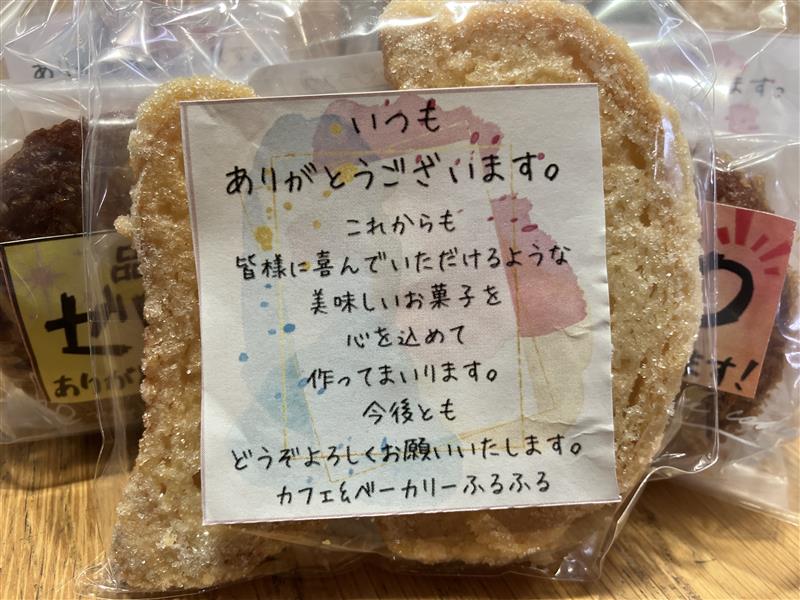 いつも
ありがとうございます。
これからも
皆様に喜んでいただけるような
美味しいお菓子を
心を込めて
作ってまいります。
今後とも
どうぞよろしくお願いいたします。
カフェ&ベーカリーふるふる
品
ありが
ます!
ます。